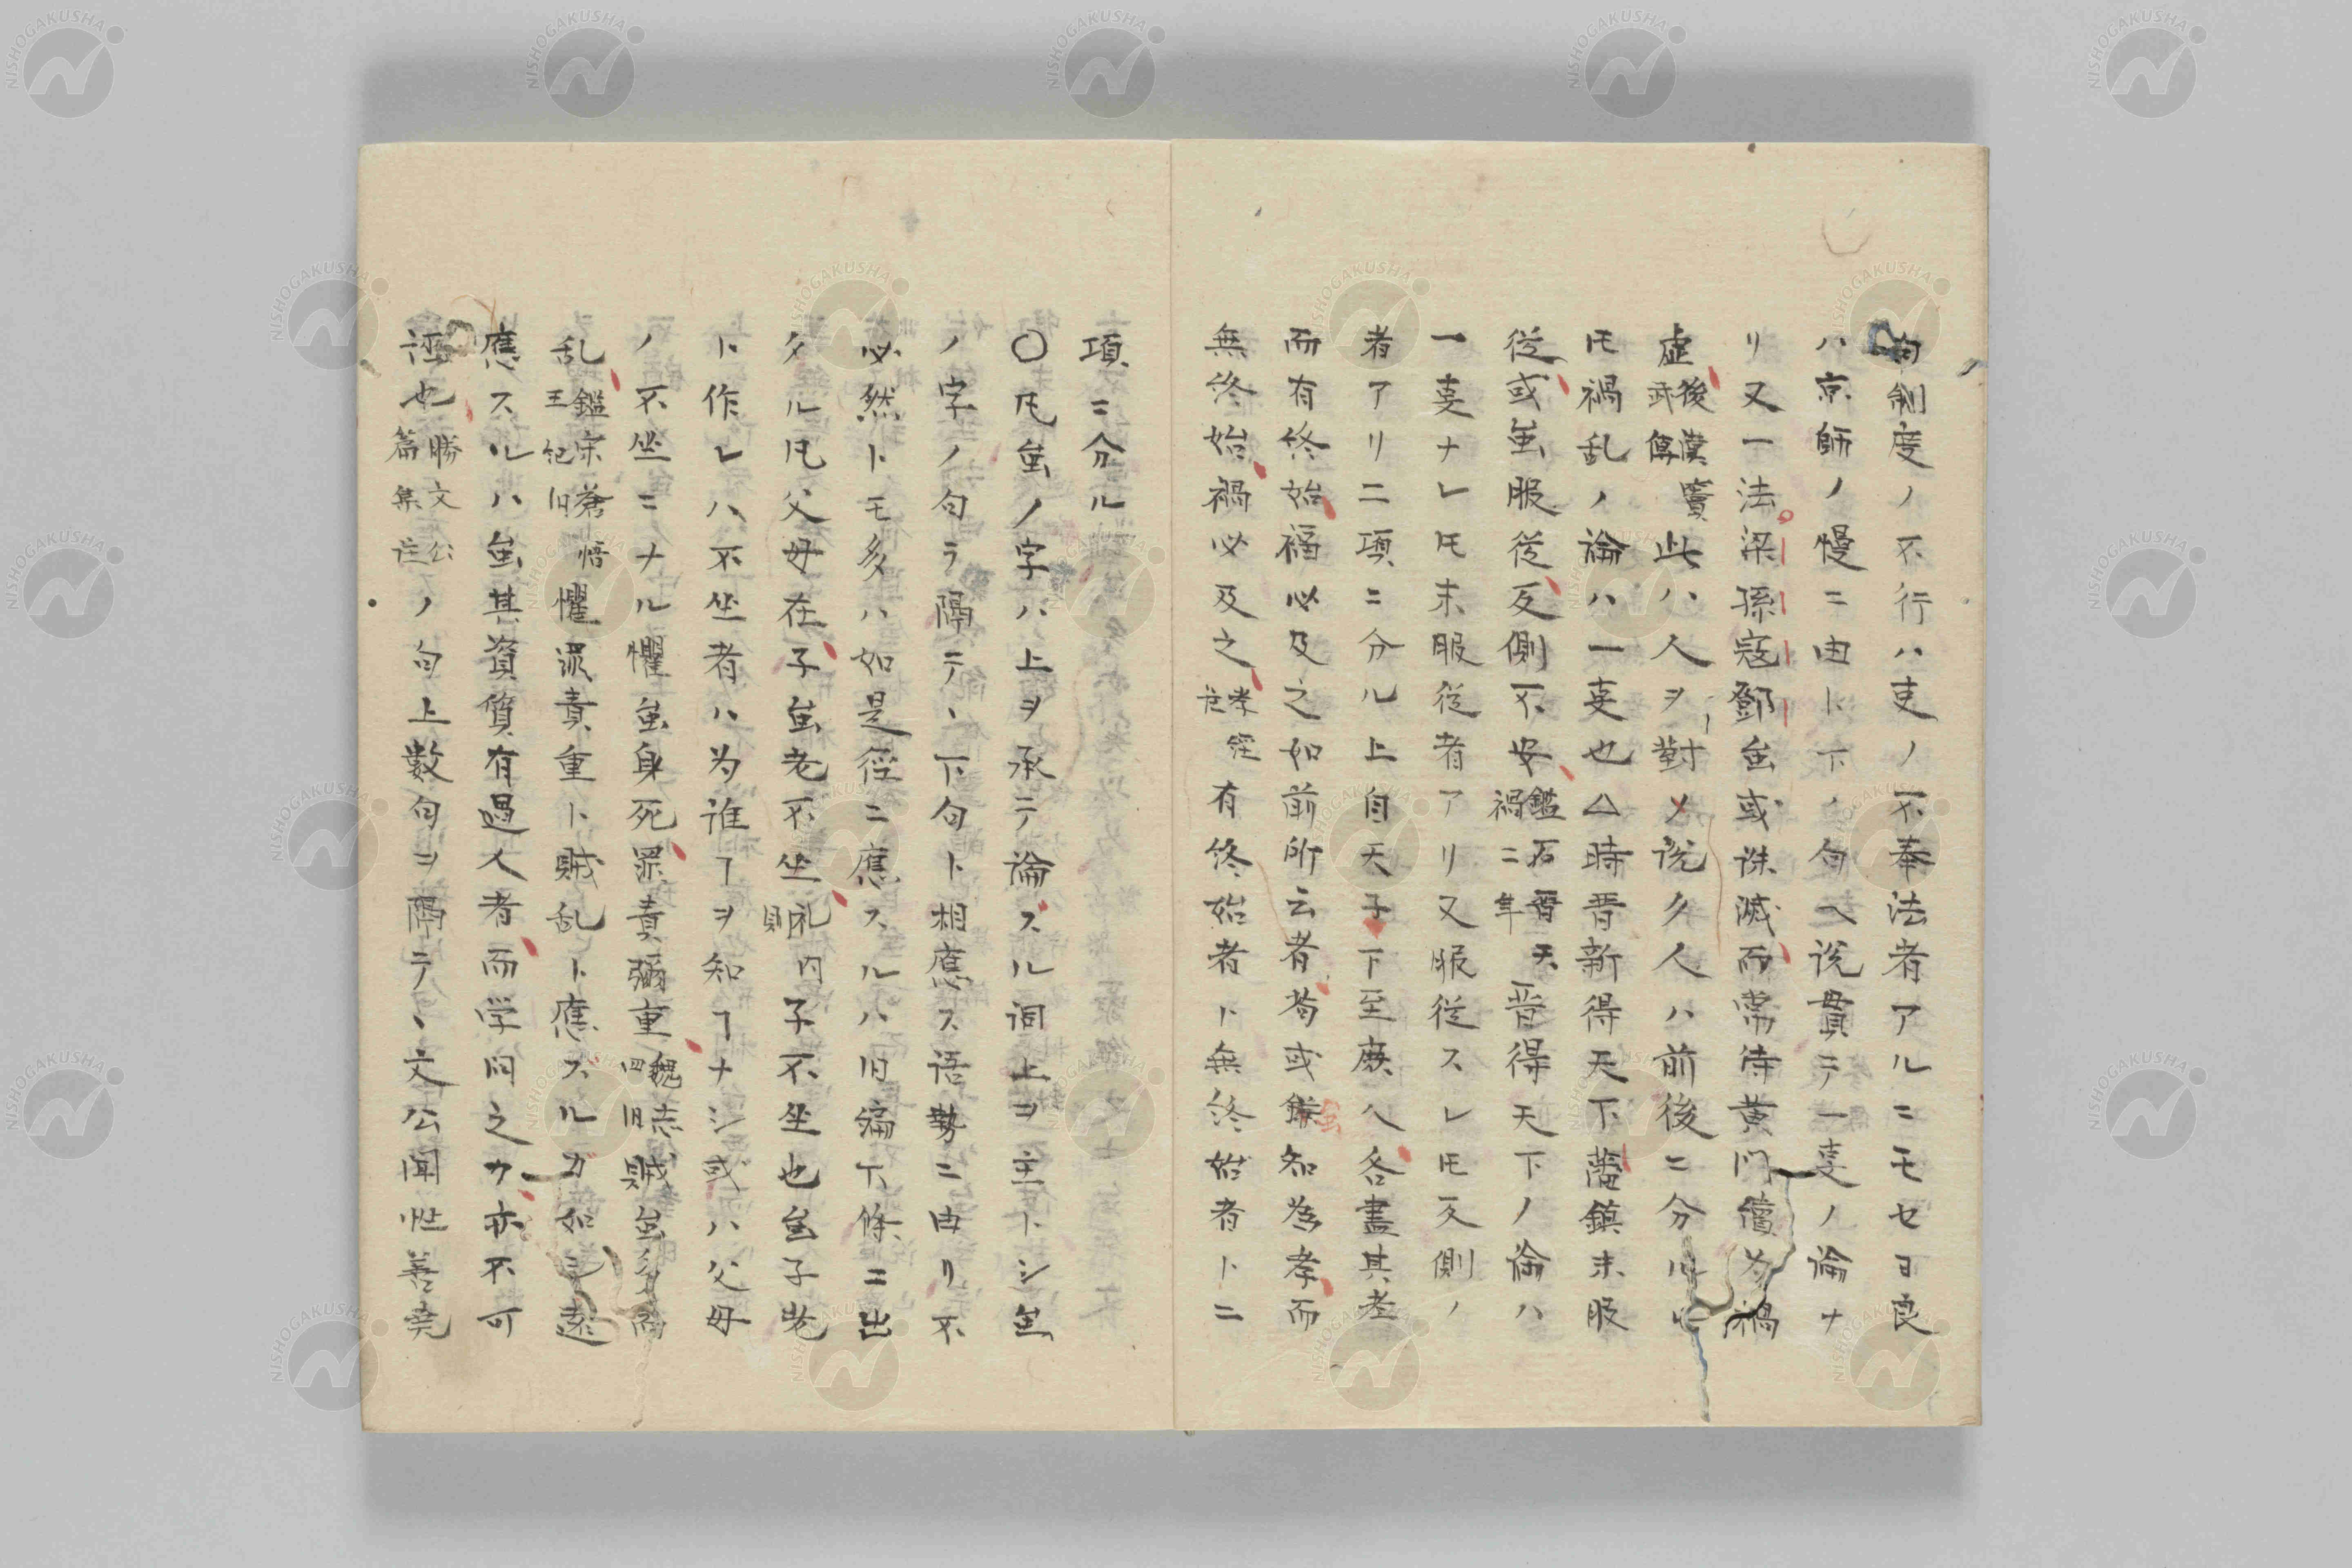 句制度ノ不行ハ吏ノ不奉法者アルニモセヨ良
ハ京師ノ慢ニ由ト下ノ句ヘ説貫テ一事ノ論ナ
リ又一法梁孫寇鄧虽或誅滅而常侍黄門續為禍
虚後漢竇武傳此ハ人ヲ對メ説タ人ハ前後ニ分ル
𪜈禍乱ノ論ハ一叓也△時晋新得天下藩鎮未服
従或虽服従反側不安鑑石晋天禍二年晋得天下ノ論ハ
一叓ナレ𪜈未服従者アリ又服従スレ𪜈反側ノ
者アリ二項ニ分ル上自天子下至庶人各盡其孝
而有終始福必及之如前所云者苟或雖知為孝而
無終始禍必及之孝經注有終始者ト無終始者ト二
項ニ分ル
○凡虽ノ字ハ上ヲ承テ論スル詞上ヲ主トシ虽
ノ字ノ句ヲ隔テ、下句ト相應ス語勢ニ由リ不
必然トモ多ハ如是徑ニ應スルハ旧編下條ニ出
タル凡父母在子虽老不坐礼内則子不坐也虽子老
ト作レハ不坐者ハ為誰ヿヲ知ヿナシ或ハ父母
ノ不坐ニナル懼虽身死罪責彌重魏志四旧賊虽多而
乱鑑宋蒼梧王紀旧懼罪責重ト賊乱ト應スルガ如シ遠
應スルハ虽其資質有過人者而学問之力亦不可
誣也勝文公篇集注ノ句上數句ヲ隔テ、文公聞性善堯